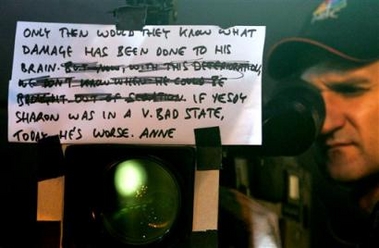 ONLY THEN WOULD THEY KNOW WHAT
DAMAGE HAS BEEN DONE TO HIS
BRAIN. BUT NOW, WITH THIS DETERIORATION,
WE DON'T KNOW WHEN HE COULD BE
BROUGHT OUT OF SEDATION. IF YESDY
SHARON WAS IN A V. BAD STATE,
TODAY HE'S WORSE. ANNE